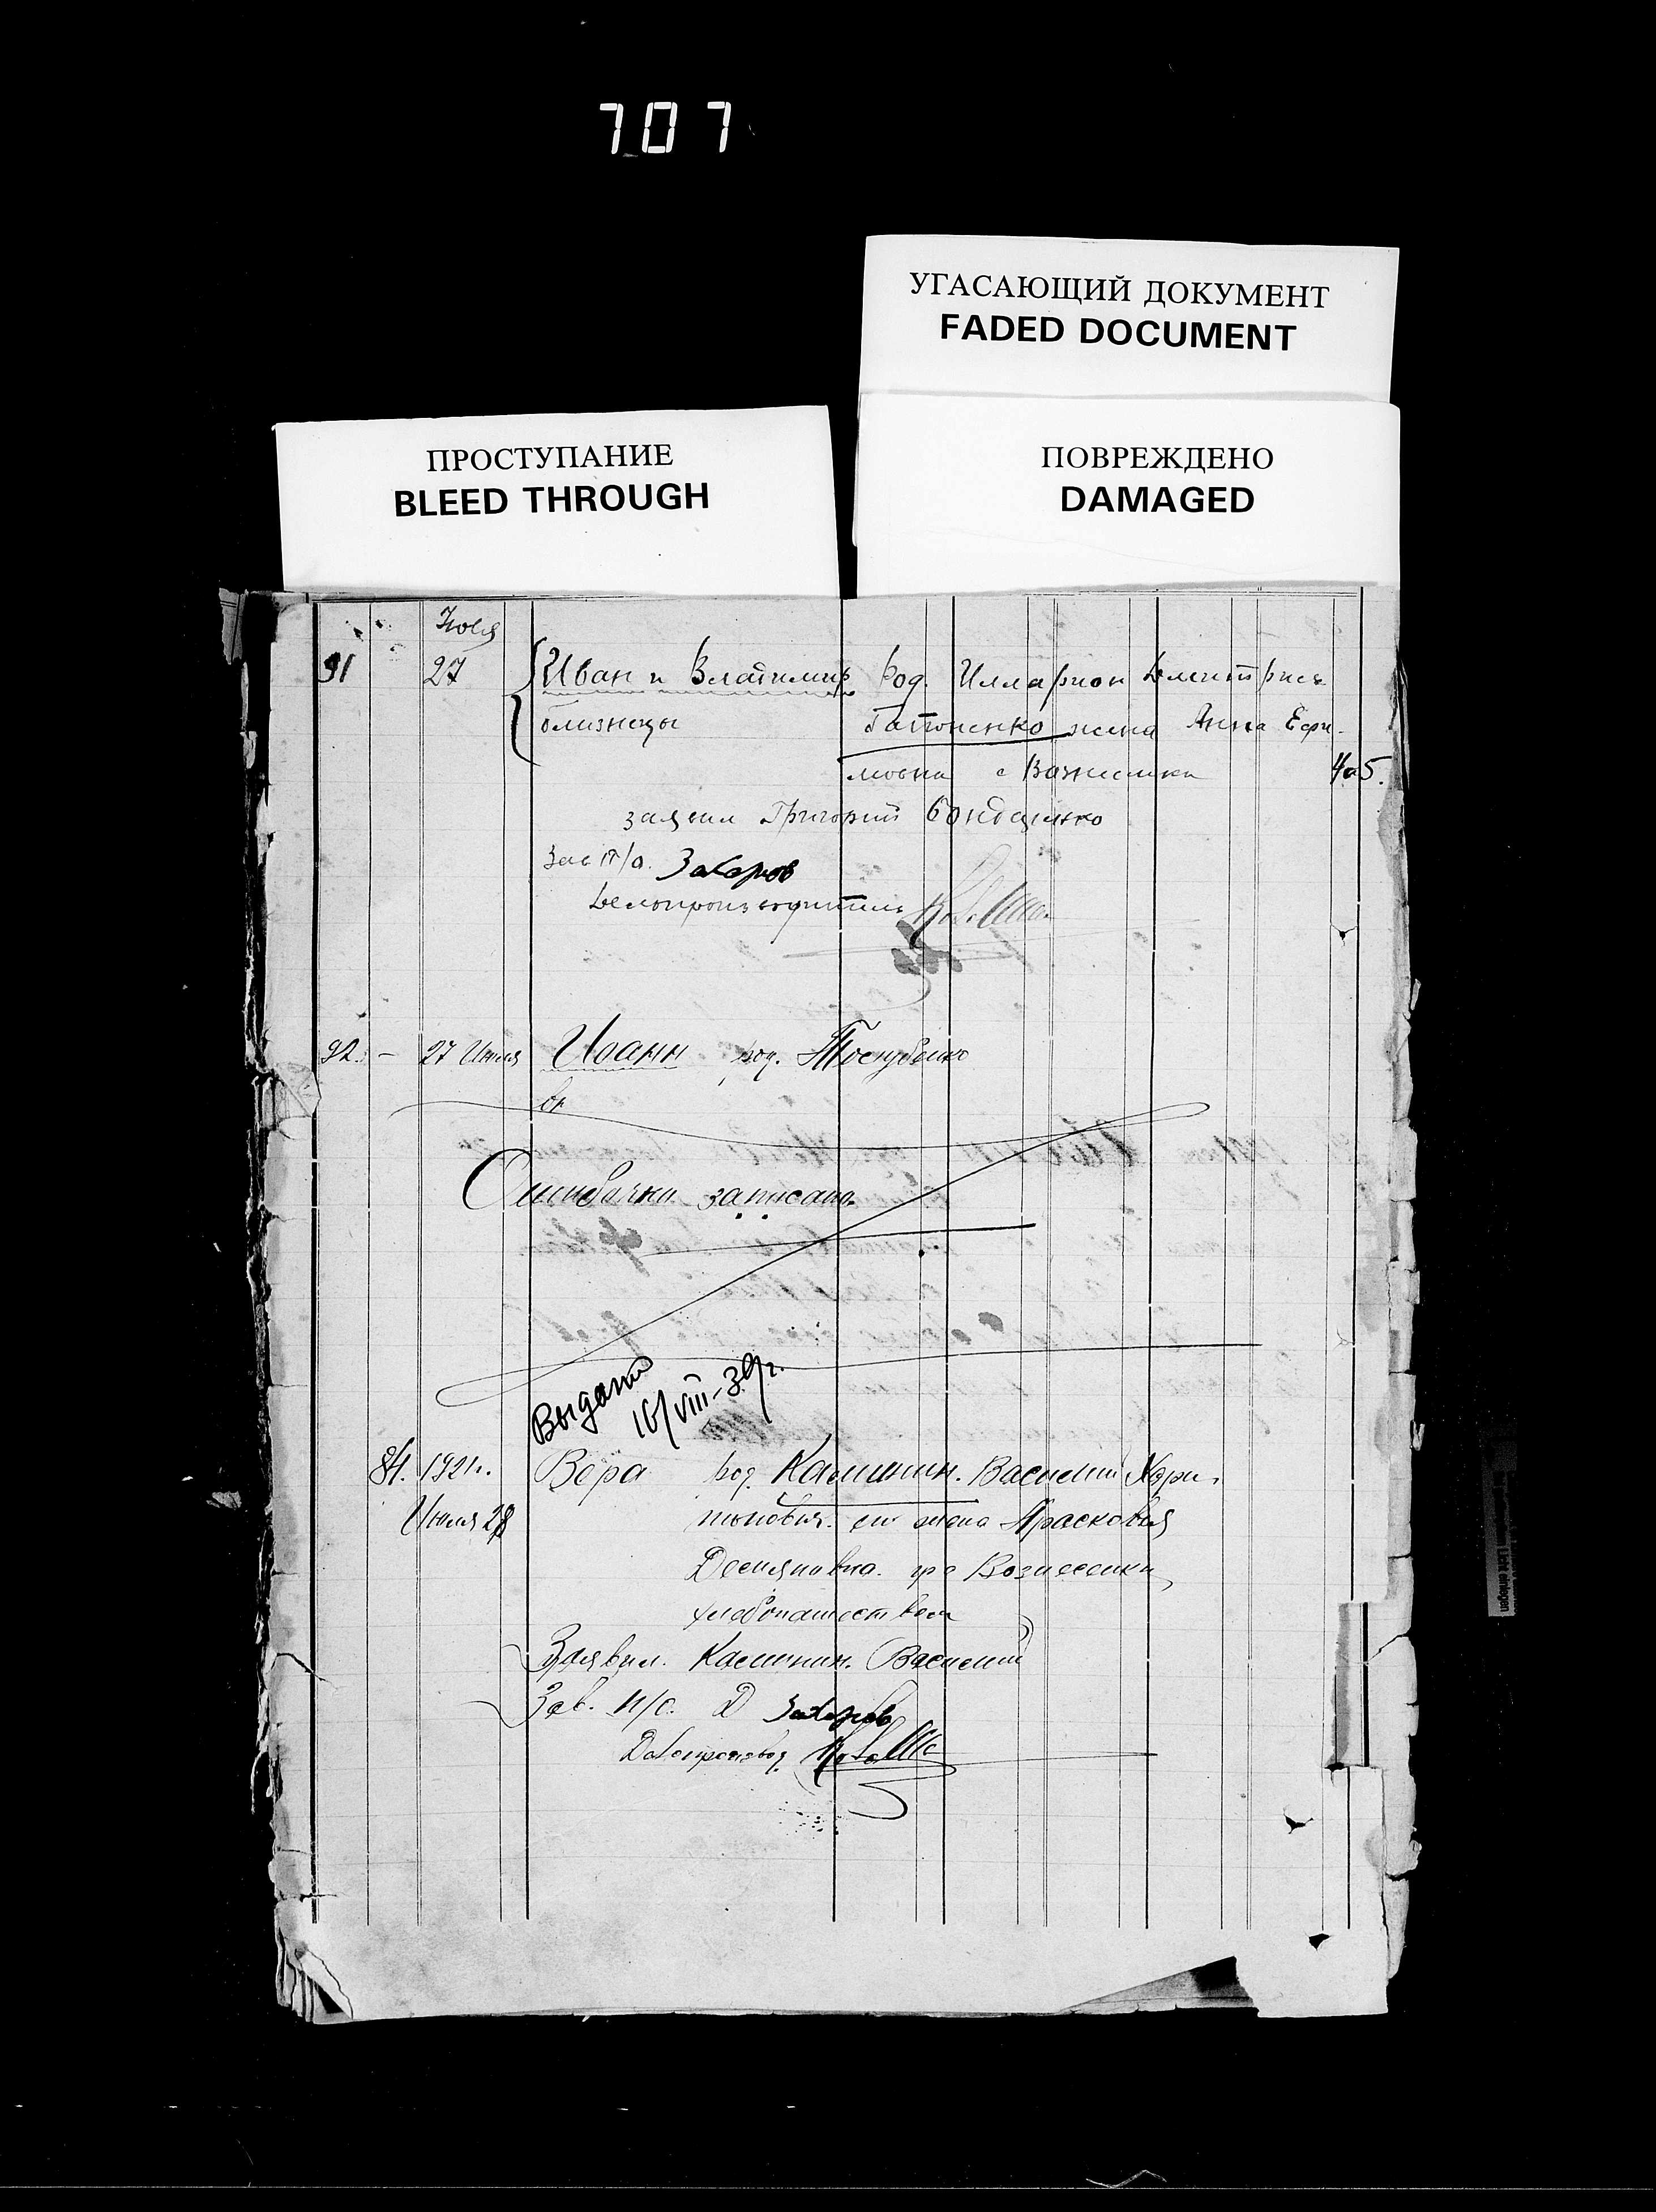 707
УГАСАЮЩИЙ ДОКУМЕНТ
FADED DOCUMENT
ПРОСТУПАНИЕ
BLEED THROUGH
ПОВРЕЖДЕНО
DAMAGED
Июля
91 27 Иван и Владимир род. Илларион Дмитриев
близнецы жена Анна Ефи-
мовна с Вознесенка 4а5.
заявил Григорий Бондаренко
Зав п/о. Захаров
Делопроизводитель
92. – 27 Июля Иван род.
Ошибочна записана
Выдано
16/VIII-39г.
84. 1921г. Вера род. Калинин. Василий Хари-
Июля 28 тонович. его жена Прасковья
гр с Вознесенки
хлебопашеством
Заявил. Калинин. Василий
Зав. п/о. Д Захаров
Делопроизвод